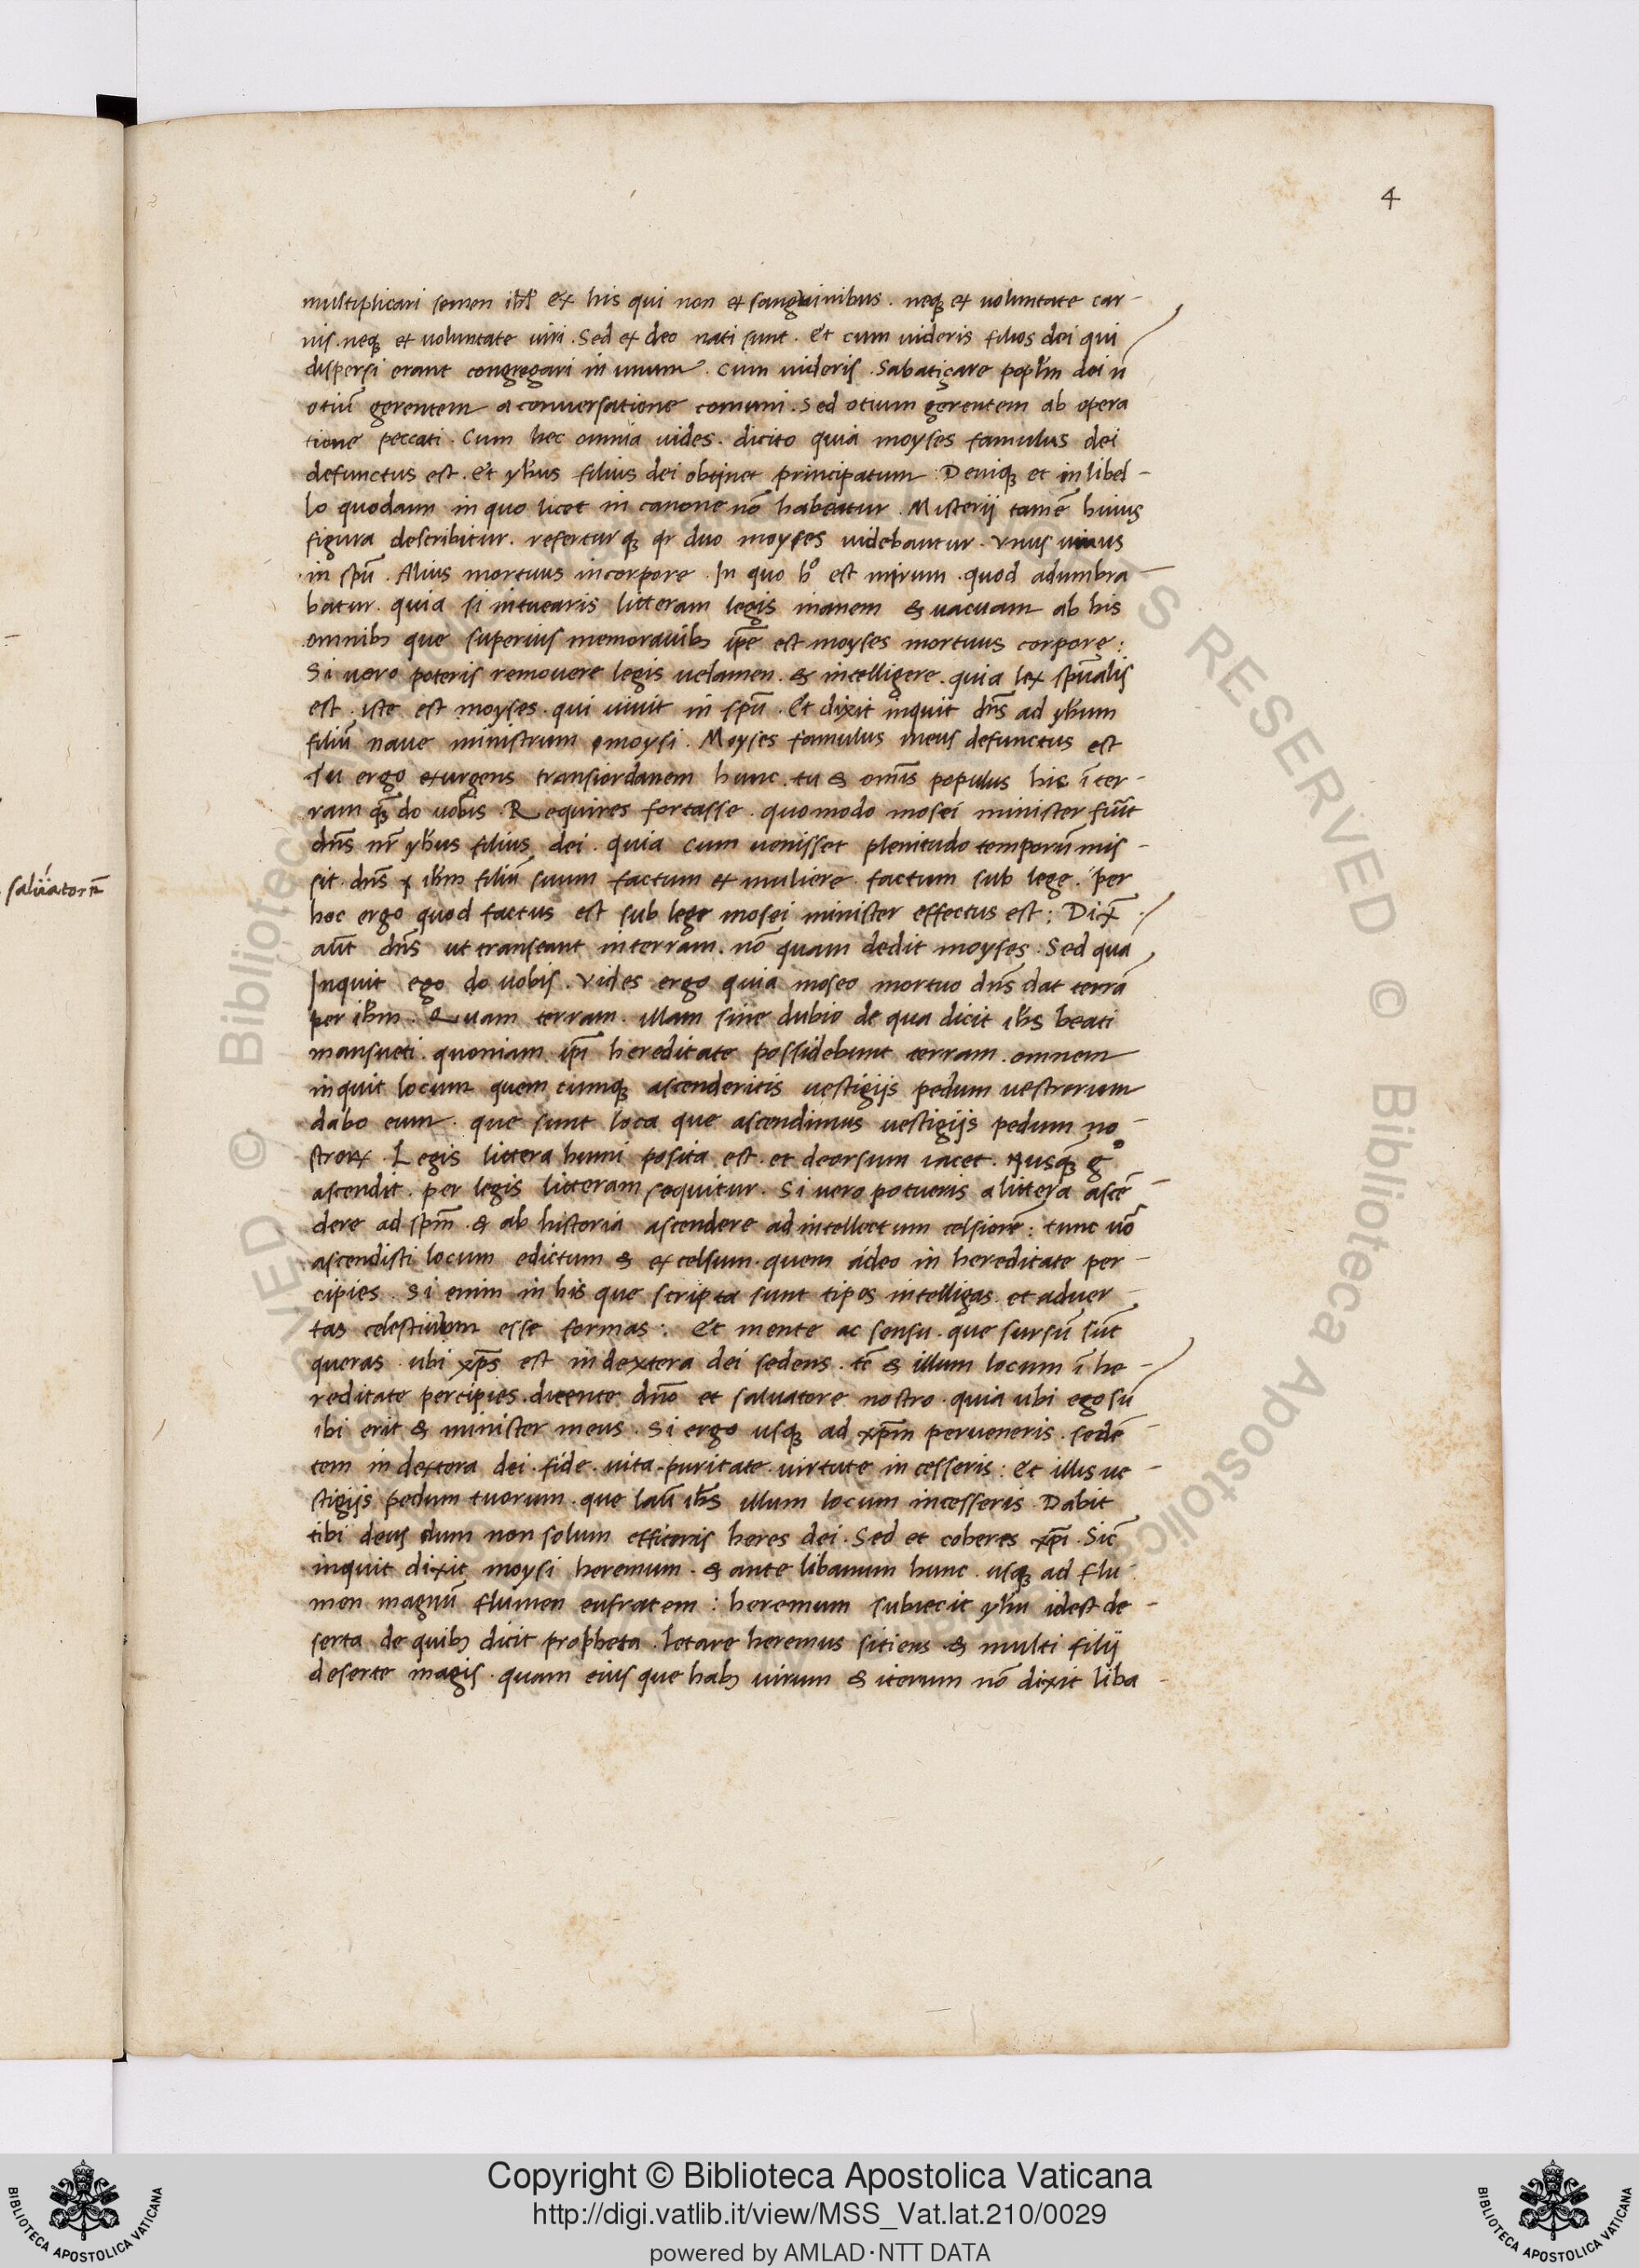 4
multiplicari semen ihl' ex his qui non ex sanguinibus. neq; ex uoluntate car-
nis. neq; ex uoluntate uiri. Sed ex deo nati sunt. Et cum uideris filios dei qui
dispersi erant congregari in unum. cum uideris. Sabatiçare poplm dei n̄
otiū gerentem a conuersatione comuni. Sed otium gerentem ab opera
tione peccati. Cum hec omnia uides. dicito quia moyses famulus dei
defunctus est. Et yhus filius dei obtinet principatum Deniq; et in libel-
lo quodam in quo licet in canone nō habeatur. Misterij tamē huius
figura describitur. refertur q; qr duo moyses uidebantur. vnus uiuus
in spū. Alius mortuus in corpore. In quo h° est mirum. quod adumbra-
batur. quia si intuearis litteram legis inanem & uacuam ab his
omnib; que superius memorauib; ipe est moyses mortuus corpore:
Si uero poteris remouere legis uelamen. & intelligere. quia lex spūalis
est. iste est moyses. qui uiuit in spū. Et dixit inquit dns ad yhum
filiū naue ministrum moysi. Moyses famulus meus defunctus est
Tu ergo exurgens transiordanem hunc. tu & omis populus hic ī ter-
ram quā do uobis. Requires fortasse. quomodo mosei minister fuit
dns nr yhus filius dei. quia cum uenisset plenitudo temporū mis-
sit. dns ihm filiū suum factum ex muliere. factum sub lege. per
hoc ergo quod factus est sub lege mosei minister effectus est: Dix̄.
aūt dns ut transeant in terram. nō quam dedit moyses. Sed quā
Inquit ego do uobis. vides ergo quia moseo mortuo dns dat terrā
per ihm. Quam terram. illam sine dubio de qua dicit ihs beati
mansueti. quoniam ipi hereditate possidebunt terram. omnem
inquit locum quem cumq; ascenderitis uestigijs pedum uestrorum
dabo eum. que sunt loca que ascendimus uestigijs pedum no-
strorx. Legis littera humi posita est. et deorsum iacet. nusq; g°
ascendit. per legis litteram sequitur. Si uero potueris a littera ascē-
dere ad spm. & ab historia ascendere ad intellectum celsiorē: tunc uō
ascendisti locum edictum & excelsum. quem a deo in hereditate per-
cipies. Si enim in his que scripta sunt tipos intelligas. et aduer-
tas celestium esse formas: Et mente ac sensu. que sursū sūt
queras. ubi xps est in dextera dei sedens. tē & illum locum ī he-
reditate percipies. dicente dno et saluatore nostro. quia ubi ego sū
ibi erit & minister meus. Si ergo usq; ad xpm perueneris. sedē-
tem in dextera dei. fide. uita. puritate. uirtute in cesseris: Et illis ue-
stigijs pedum tuorum. que lauī ihs illum locum incesseris. Dabit
tibi deus dum non solum efficeris heres dei. Sed et coheres xpi. Sic
inquit dixit moysi heremum. & ante libanum hunc. usq; ad flu-
men magnū flumen eufratem: heremum subiecit yhu idest de-
serta de quib; dicit propheta. letare heremus sitiens. & multi filij
deserte magis. quam eius que hab; uirum & iterum nō dixit liba-
saluatorē
Copyright © Biblioteca Apostolica Vaticana
http://digi.vatlib.it/view/MSS_Vat.lat.210/0029
powered by AMLAD·NTT DATA